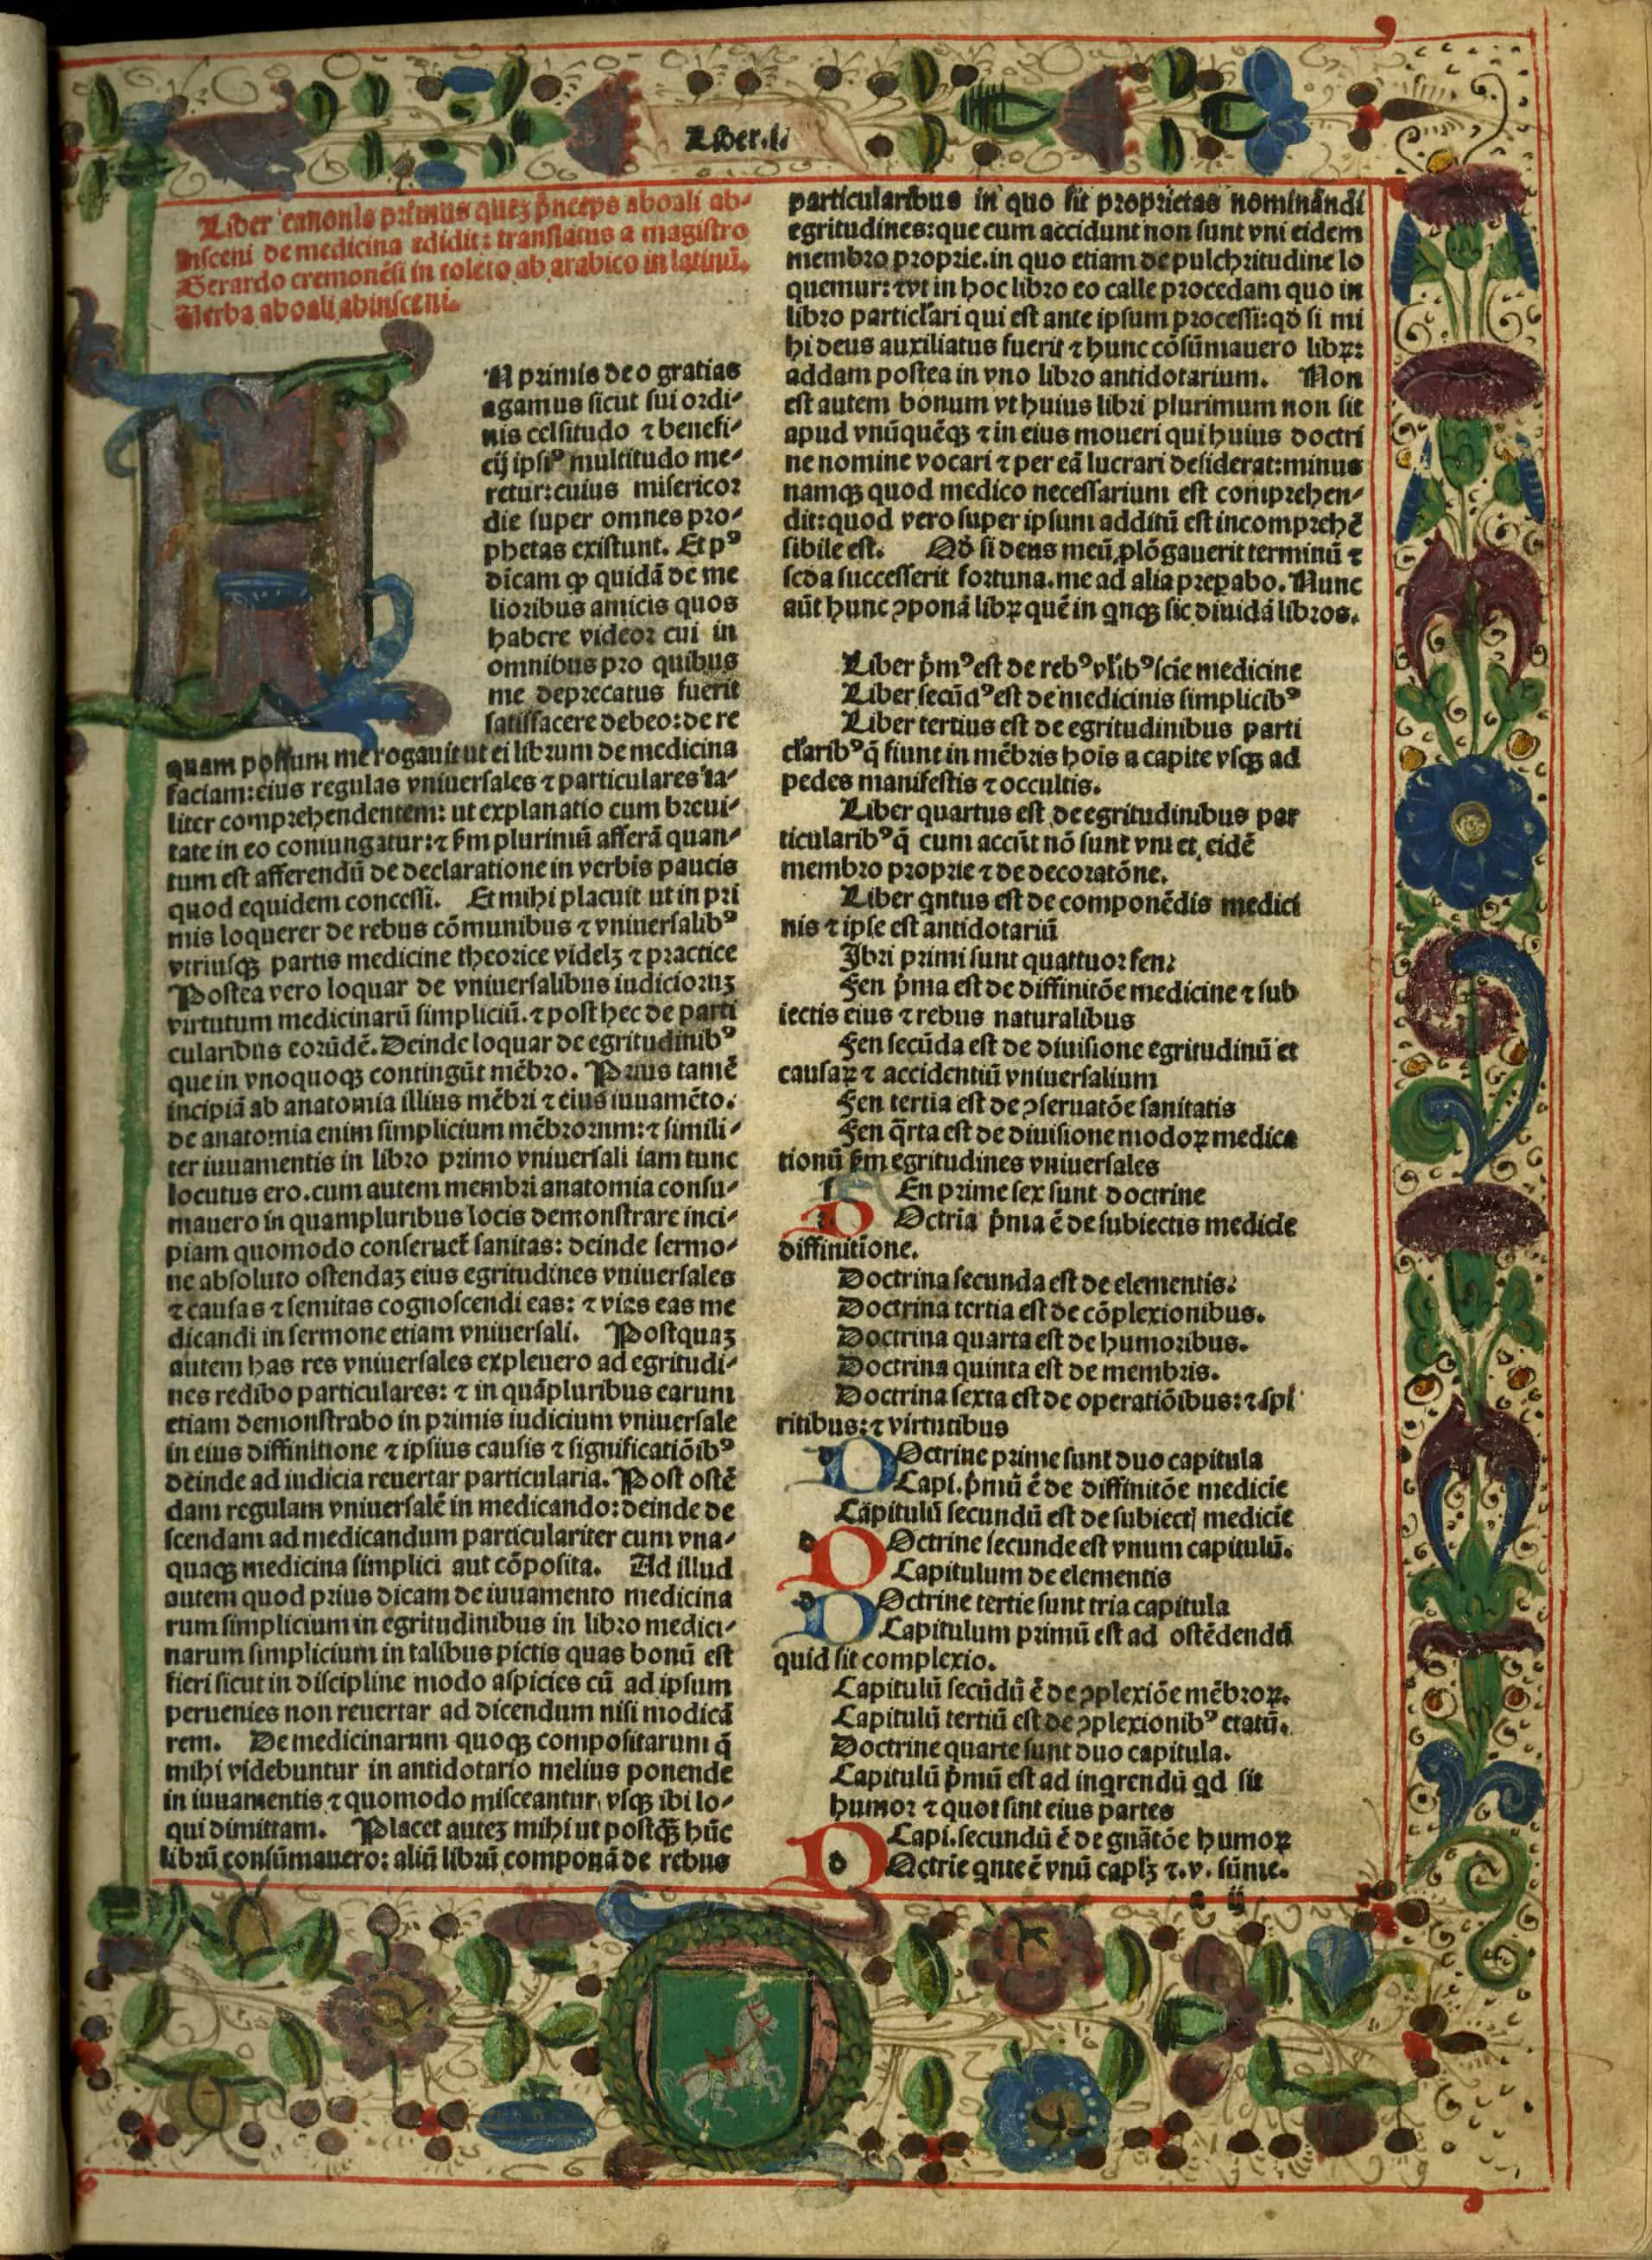 Liber.I.
Liber canonis primus quez p̄nceps aboali ab-
insceni de medicina edidit: translatus a magistro
Gerardo cremonēsi in toleto ab arabico in latinū.
Verba aboali abinsceni.
IN primis deo gratias
agamus sicut sui ordi-
nis celsitudo ⁊ benefi-
cij ipsiꝰ multitudo me-
retur: cuius misericor
die super omnes pro-
phetas existunt. Et pꝰ
dicam ꝙ quidā de me
lioribus amicis quos
habere videor cui in
omnibus pro quibus
me deprecatus fuerit
satisfacere debeo: de re
quam possum me rogauit ut ei librum de medicina
faciam: eius regulas vniuersales ⁊ particulares ta-
liter comprehendentem: ut explanatio cum breui-
tate in eo coniungatur: ⁊ ẜm plurimū afferā quan-
tum est afferendū de declaratione in verbis paucis
quod equidem concessi. Et mihi placuit ut in pri
mis loquerer de rebus cōmunibus ⁊ vniuersalibꝰ
vtriusqꝫ partis medicine theorice videlꝫ ⁊ practice
Postea vero loquar de vniuersalibus iudicioruꝫ
virtutum medicinarū simpliciū. ⁊ post hec de parti
cularibus eorūdē. Deinde loquar de egritudinibꝰ
que in vnoquoqꝫ contingūt mēbro. Prius tamē
incipiā ab anatomia illius mēbri ⁊ eius iuuamēto.
de anatomia enim simplicium mēbrorum: ⁊ simili-
ter iuuamentis in libro primo vniuersali iam tunc
locutus ero. cum autem membri anatomia consu-
mauero in quampluribus locis demonstrare inci-
piam quomodo conseruet̄ sanitas: deinde sermo-
ne absoluto ostendaꝫ eius egritudines vniuersales
⁊ causas ⁊ semitas cognoscendi eas: ⁊ vias eas me
dicandi in sermone etiam vniuersali. Postquaꝫ
autem has res vniuersales expleuero ad egritudi-
nes redibo particulares: ⁊ in quāpluribus earum
etiam demonstrabo in primis iudicium vniuersale
in eius diffinitione ⁊ ipsius causis ⁊ significatiōibꝰ
deinde ad iudicia reuertar particularia. Post ostē
dam regulam vniuersalē in medicando: deinde de
scendam ad medicandum particulariter cum vna-
quaqꝫ medicina simplici aut cōposita. Ad illud
autem quod prius dicam de iuuamento medicina
rum simplicium in egritudinibus in libro medici-
narum simplicium in talibus pictis quas bonū est
fieri sicut in discipline modo aspicies cū ad ipsum
peruenies non reuertar ad dicendum nisi modicā
rem. De medicinarum quoqꝫ compositarum q̄
mihi videbuntur in antidotario melius ponende
in iuuamentis ⁊ quomodo misceantur, vsqꝫ ibi lo-
qui dimittam. Placet auteꝫ mihi ut postqꝫ̄ hūc
librū consūmauero: aliū librū componā de rebus
particularibus in quo sit proprietas nominandi
egritudines: que cum accidunt non sunt vni eidem
membro proprie. in quo etiam de pulchritudine lo
quemur: ⁊ vt in hoc libro eo calle procedam quo in
libro particl̄ari qui est ante ipsum processi: qđ si mi
hi deus auxiliatus fuerit ⁊ hunc cōsūmauero libꝝ:
addam postea in vno libro antidotarium. Non
est autem bonum vt huius libri plurimum non sit
apud vnūquēqꝫ ⁊ in eius moueri qui huius doctri
ne nomine vocari ⁊ per eā lucrari desiderat: minus
namqꝫ quod medico necessarium est comprehen-
dit: quod vero super ipsum additū est incomprehē
sibile est. Qđ si deus meū ꝓlōgauerit terminū ⁊
secūda successerit fortuna. me ad alia prep̲abo. Nunc
aūt hunc ꝯponā libꝝ quē in qnqꝫ sic diuidā libros.
Liber p̄mꝰ est de rebꝰ vl̄ibꝰ scie medicine
Liber secūdꝰ est de medicinis simplicibꝰ
Liber tertius est de egritudinibus parti
cl̄aribꝰ q̄ fiunt in mēbris hois a capite vsqꝫ ad
pedes manifestis ⁊ occultis.
Liber quartus est de egritudinibus par
ticularibꝰ q̄ cum accūt nō sunt vni et eidē
membro proprie ⁊ de decoratōne.
Liber qntus est de componēdis medici
nis ⁊ ipse est antidotariū
Ibri primi sunt quattuor fen:
Fen p̄ma est de diffinitōe medicine ⁊ sub
iectis eius ⁊ rebus naturalibus
Fen secūda est de diuisione egritudinū et
causaꝝ ⁊ accidentiū vniuersalium
Fen tertia est de ꝯseruatōe sanitatis
Fen q̄rta est de diuisione modoꝝ medica
tionū ẜm egritudines vniuersales
f En prime sex sunt doctrine
D Octria p̄ma ē de subiectis medicie
diffinitione.
Doctrina secunda est de elementis.
Doctrina tertia est de cōplexionibus.
Doctrina quarta est de humoribus.
Doctrina quinta est de membris.
Doctrina sexta est de operatiōibus: ⁊ spi
ritibus: ⁊ virtutibus
DOctrine prime sunt duo capitula
Capi. p̄mū ē de diffinitōe medicie
Capitulū secundū est de subiectꝭ medicie
DOctrine secunde est vnum capitulū.
Capitulum de elementis
DOctrine tertie sunt tria capitula
Capitulum primū est ad ostēdendū
quid sit complexio.
Capitulū secūdū ē de ꝯplexiōe mēbroꝝ.
Capitulū tertiū est de ꝯplexionibꝰ etatū.
Doctrine quarte sunt duo capitula.
Capitulū p̄mū est ad inqrendū qd sit
humor ⁊ quot sint eius partes
Capi. secundū ē de gnātōe humoꝝ
DOctrie qnte ē vnū caplꝫ ⁊. v. sūme.
a ij